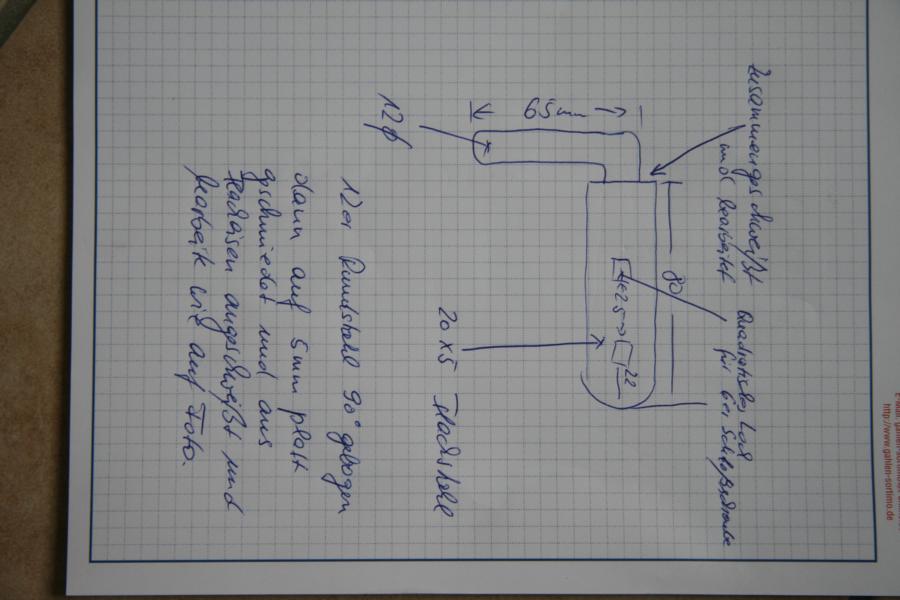 zusammengeschweißt
und bearbeitet
Quadratisches Loch
für 6er Schloßschraube
65mm
80
←25→
22
12φ
20x5 Flachstahl
12er Rundstahl 90° gebogen
dann auf 5mm platt
geschmiedet und ans
Flacheisen angeschweißt und
bearbeitet wie auf Foto.
http://www.gahlen-sortimo.de